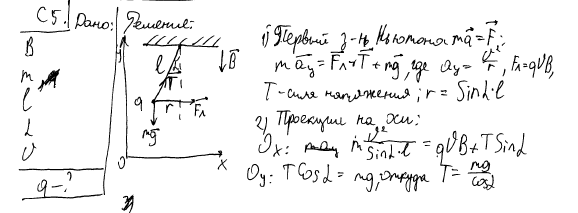 С5. Дано:
B
m
l
α
υ
q-?
Решение:
y
l
α
T⃗
B⃗
q
r
Fл
mg⃗
0
x
1) Первый з-н Ньютона ma⃗ = F⃗:
ma⃗ᵧ = F⃗л + T⃗ + mg⃗, где aᵧ = υ²/r, Fл = qυB,
T - сила натяжения; r = Sinα·l
2) Проекции на оси:
Ox: m υ²/(Sinα·l) = qυB + TSinα
Oy: TCosα = mg, откуда T = mg/cosα